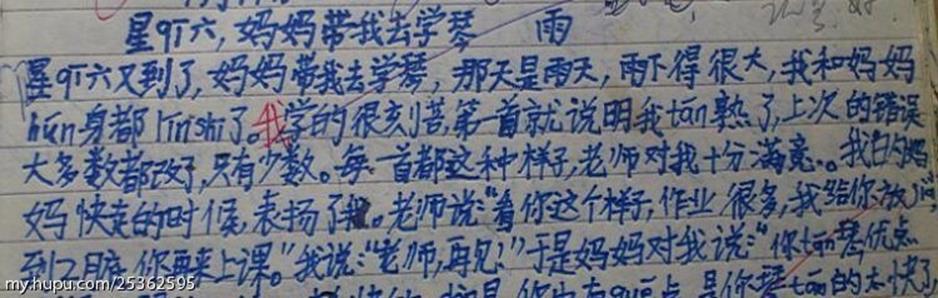 星qī六,妈妈带我去学琴 雨
星qī六又到了,妈妈带我去学琴,那天是雨天,雨下得很大,我和妈妈
hún身都lín shī了。我学的很刻苦,第一首就说明我tán熟了,上次的错误
大多数都改好,只有少数。每一首都这种样子,老师对我十分满意。我
妈快走的时候,表扬了我。老师说:“看你这个样子,作业很多,我给你放
到2月底,你再来上课。”我说:“老师,再见!”于是妈妈对我说:“你tán琴优点
是你琴tán的太快了
my.hupu.com/25362595